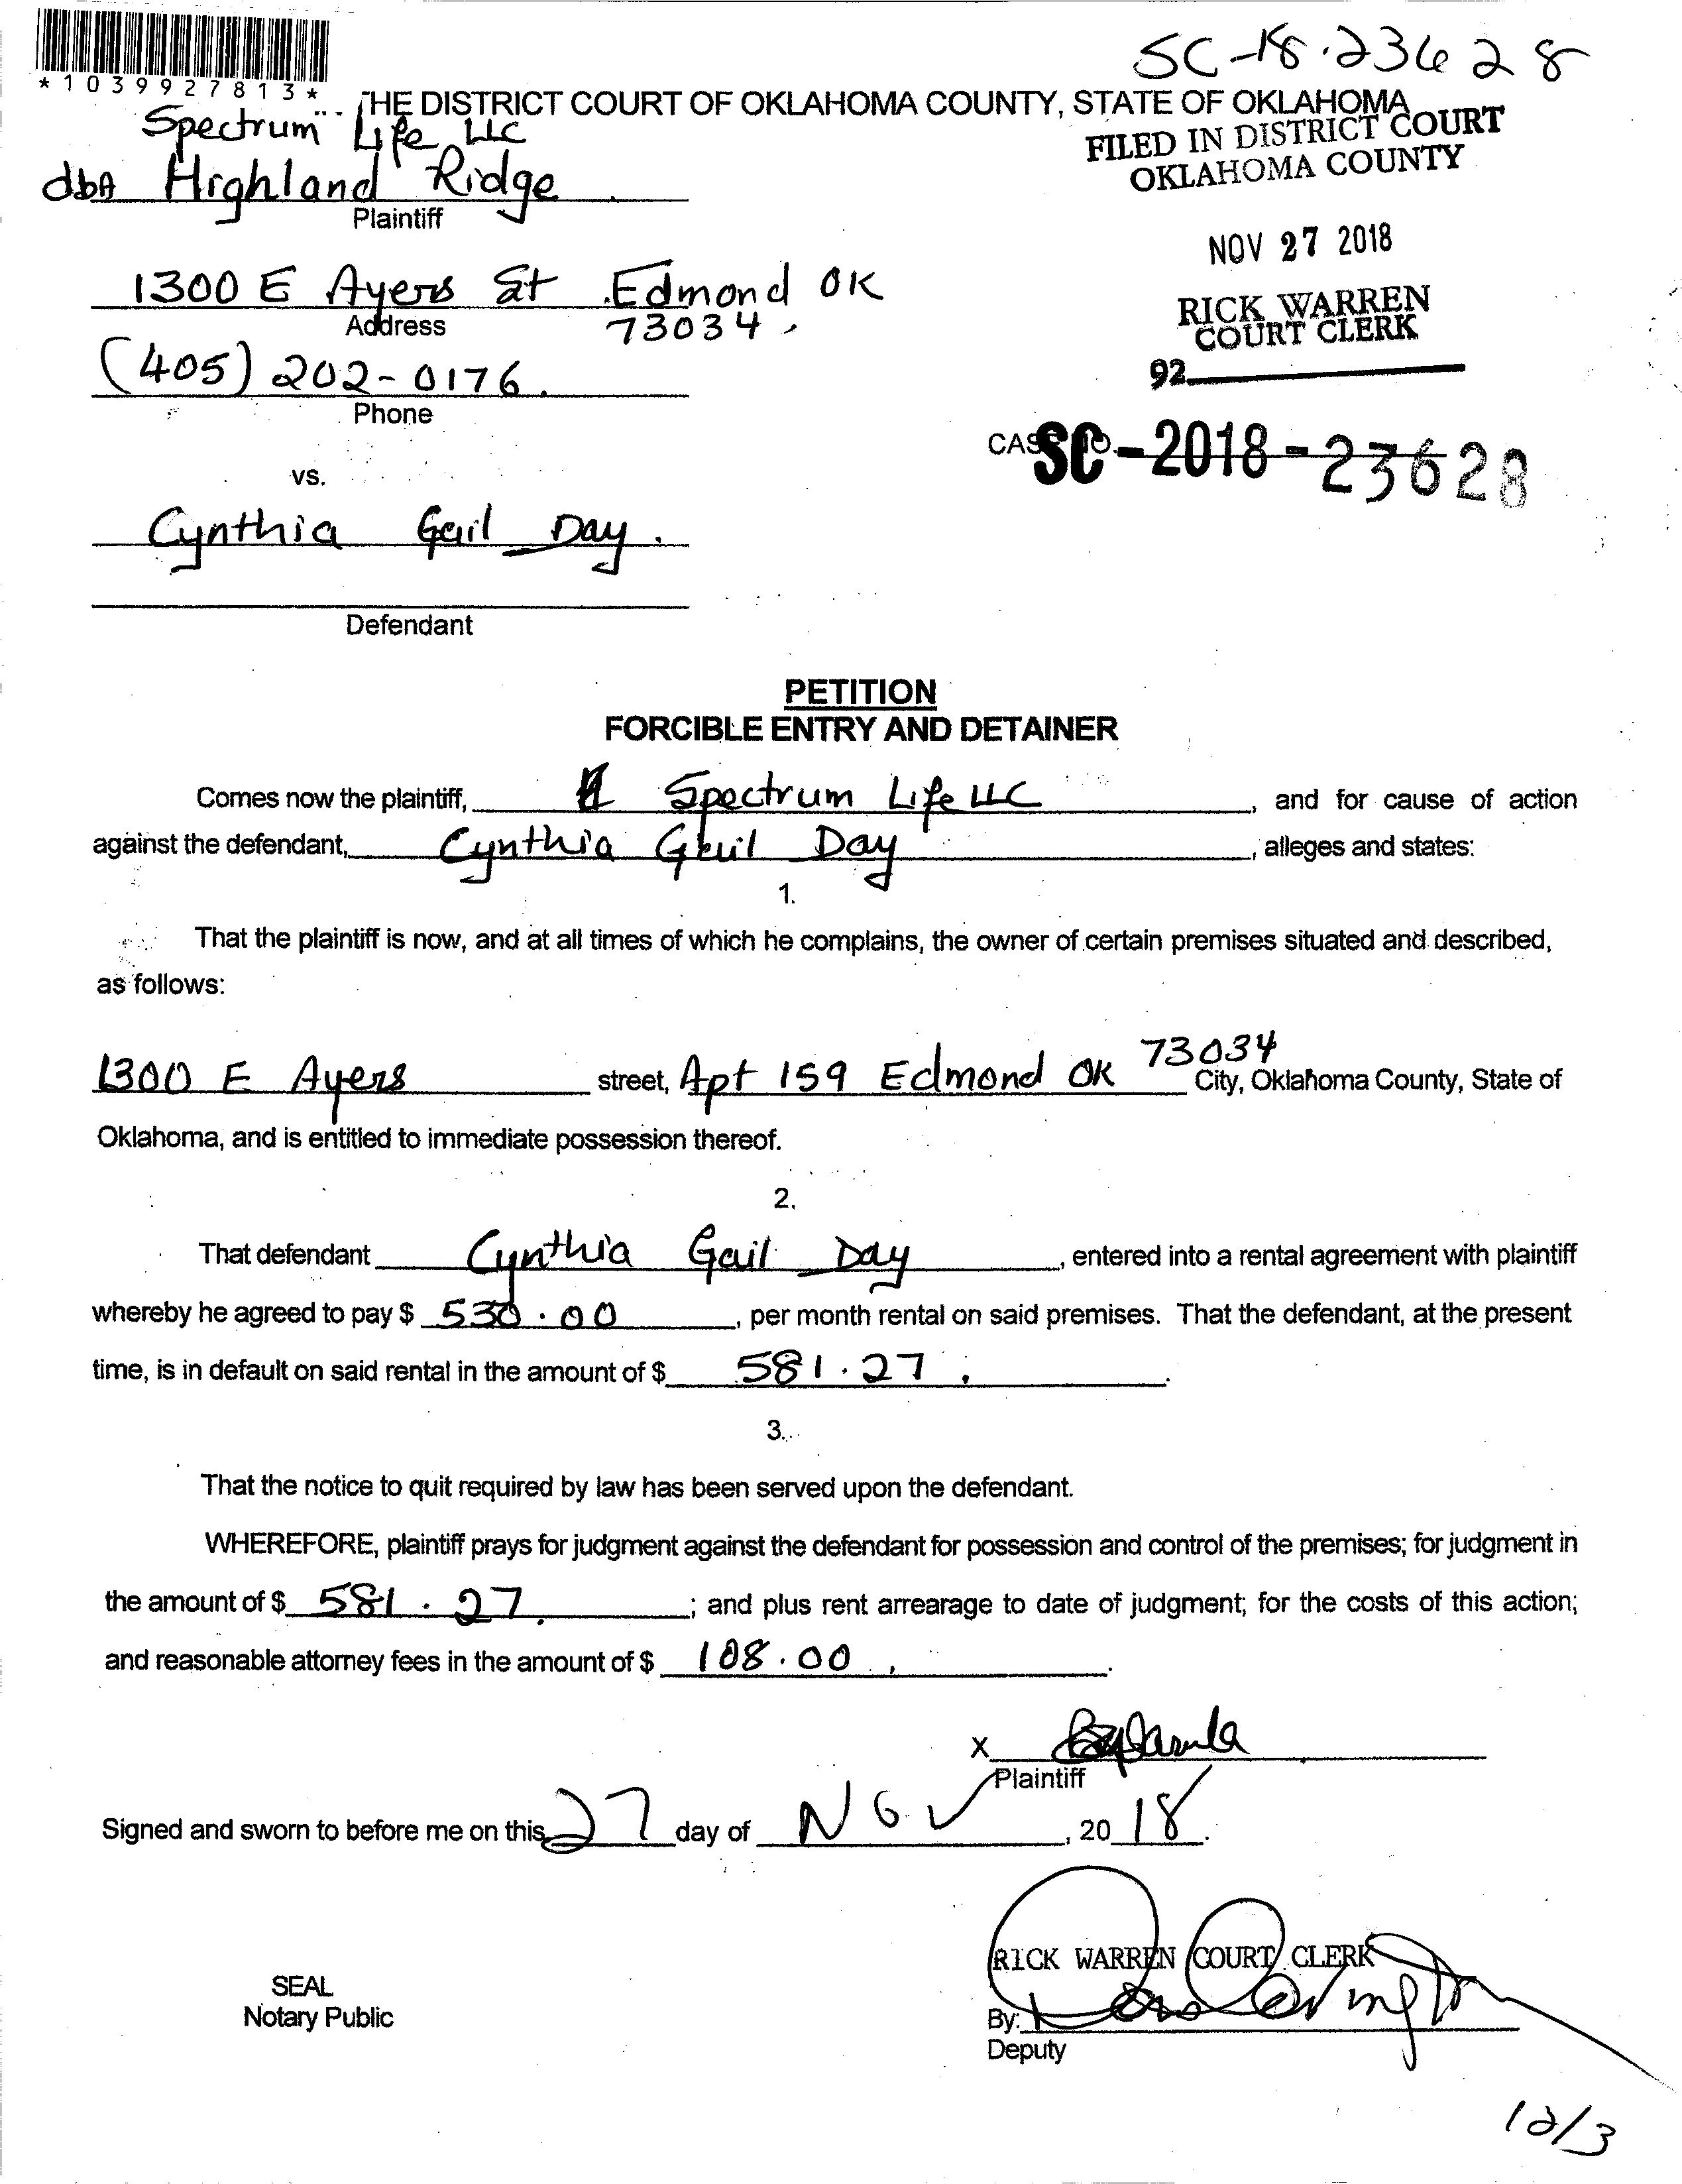 SC-18-23628
*1039927813*
THE DISTRICT COURT OF OKLAHOMA COUNTY, STATE OF OKLAHOMA
Spectrum Life LLC
dba Highland Ridge
Plaintiff
FILED IN DISTRICT COURT
OKLAHOMA COUNTY
NOV 27 2018
RICK WARREN
COURT CLERK
92
1300 E Ayers St Edmond OK
73034
Address
(405) 202-0176
Phone
SC-2018-23628
vs.
Cynthia Gail Day
Defendant
PETITION
FORCIBLE ENTRY AND DETAINER
Comes now the plaintiff, Spectrum Life LLC, and for cause of action
against the defendant, Cynthia Gail Day, alleges and states:
1.
That the plaintiff is now, and at all times of which he complains, the owner of certain premises situated and described,
as follows:
1300 E Ayers street, Apt 159 Edmond OK 73034 City, Oklahoma County, State of
Oklahoma, and is entitled to immediate possession thereof.
2.
That defendant Cynthia Gail Day, entered into a rental agreement with plaintiff
whereby he agreed to pay $ 530.00, per month rental on said premises. That the defendant, at the present
time, is in default on said rental in the amount of $ 581.27.
3.
That the notice to quit required by law has been served upon the defendant.
WHEREFORE, plaintiff prays for judgment against the defendant for possession and control of the premises; for judgment in
the amount of $ 581.27; and plus rent arrearage to date of judgment; for the costs of this action;
and reasonable attorney fees in the amount of $ 108.00.
X
Plaintiff
Signed and sworn to before me on this 27 day of Nov, 2018.
RICK WARREN COURT CLERK
SEAL
Notary Public
By:
Deputy
12/3